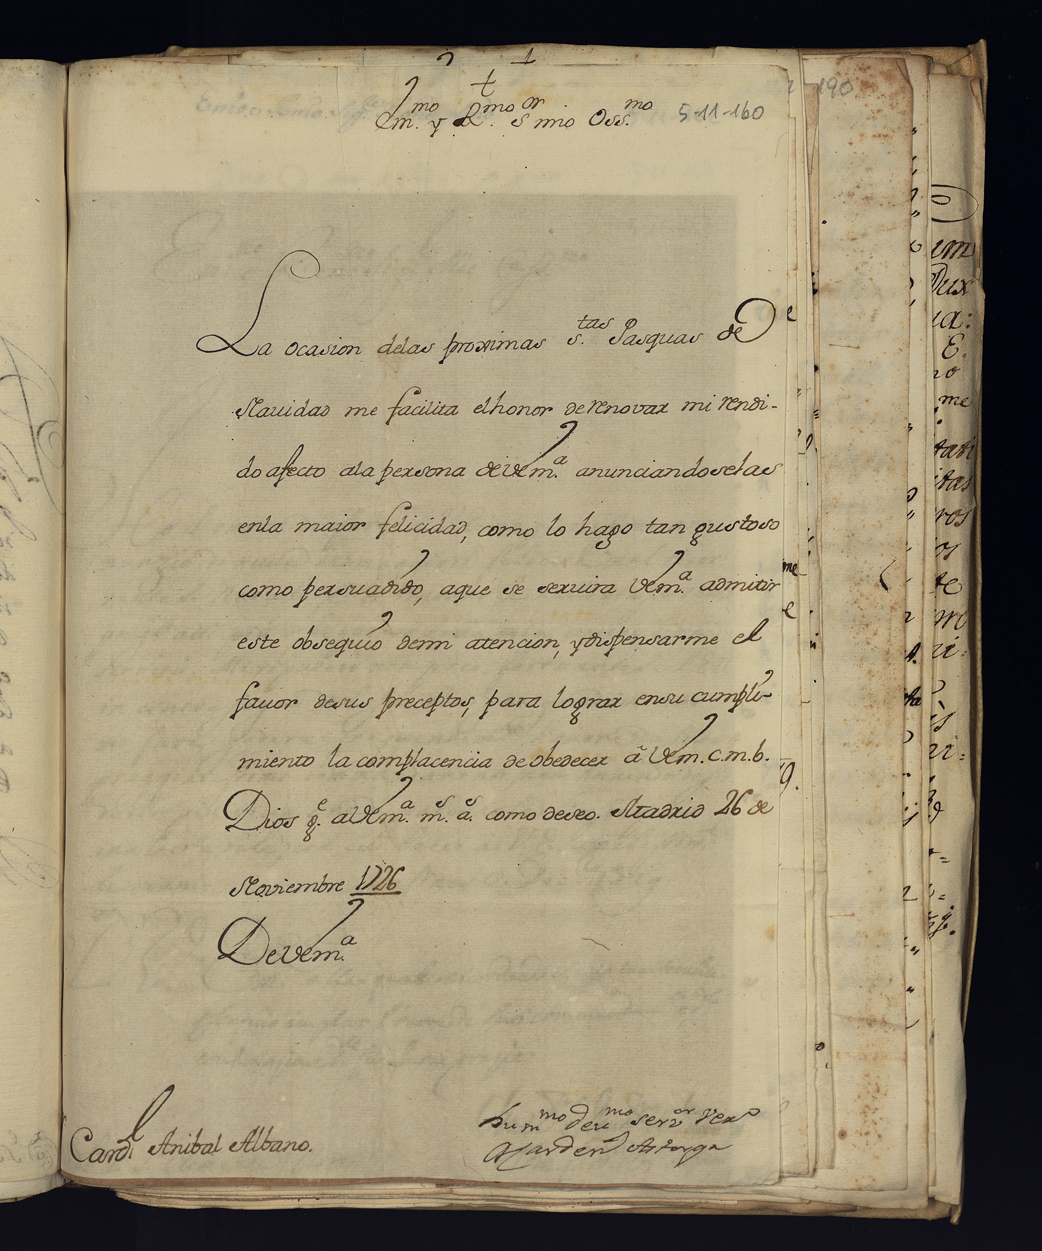 190
Em.mo y R.mo S.or mio Oss.mo 5-11-160
La ocasion delas proximas s.tas Pasquas de
Nauidad me facilita elhonor de renovar mi rendi-
do afecto ala persona de vem.a anunciandoselas
enla maior felicidad, como lo hago tan gustoso
como persuadido, aque se seruira vem.a admitir
este obsequio demi atencion, ydispensarme el
fauor desus preceptos, para lograr ensu cumpli-
miento la complacencia de obedecer â Vem. c. m. b.
Dios g.e a Vem.a m.s a.s como deseo. Madrid 26 de
Noviembre 1726
De Vem.a
hum.mo deu.mo seru.or
Card.l Anibal Albano.
Astorga